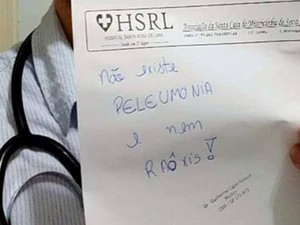 HSRL
HOSPITAL SANTA ROSA DE LIMA
Associação da Santa Casa de Misericórdia de Serra
Não existe
PELEUMONIA
e nem
RAÔxis!
Dr. Guilherme Capel
Médico